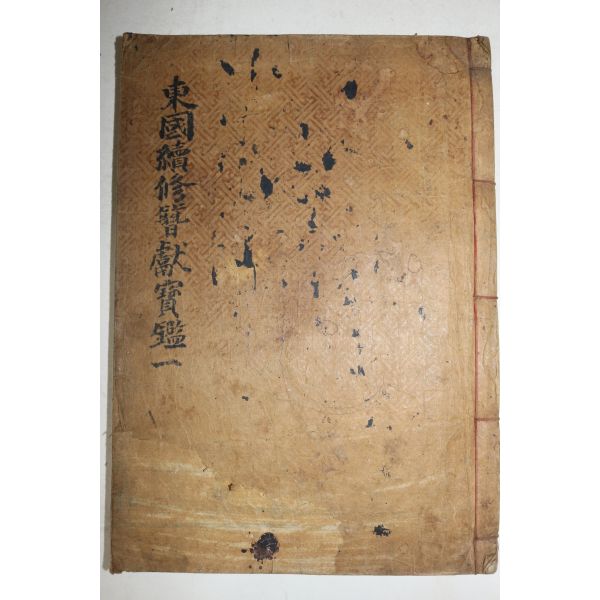 東國續修簪獻寶鑑一